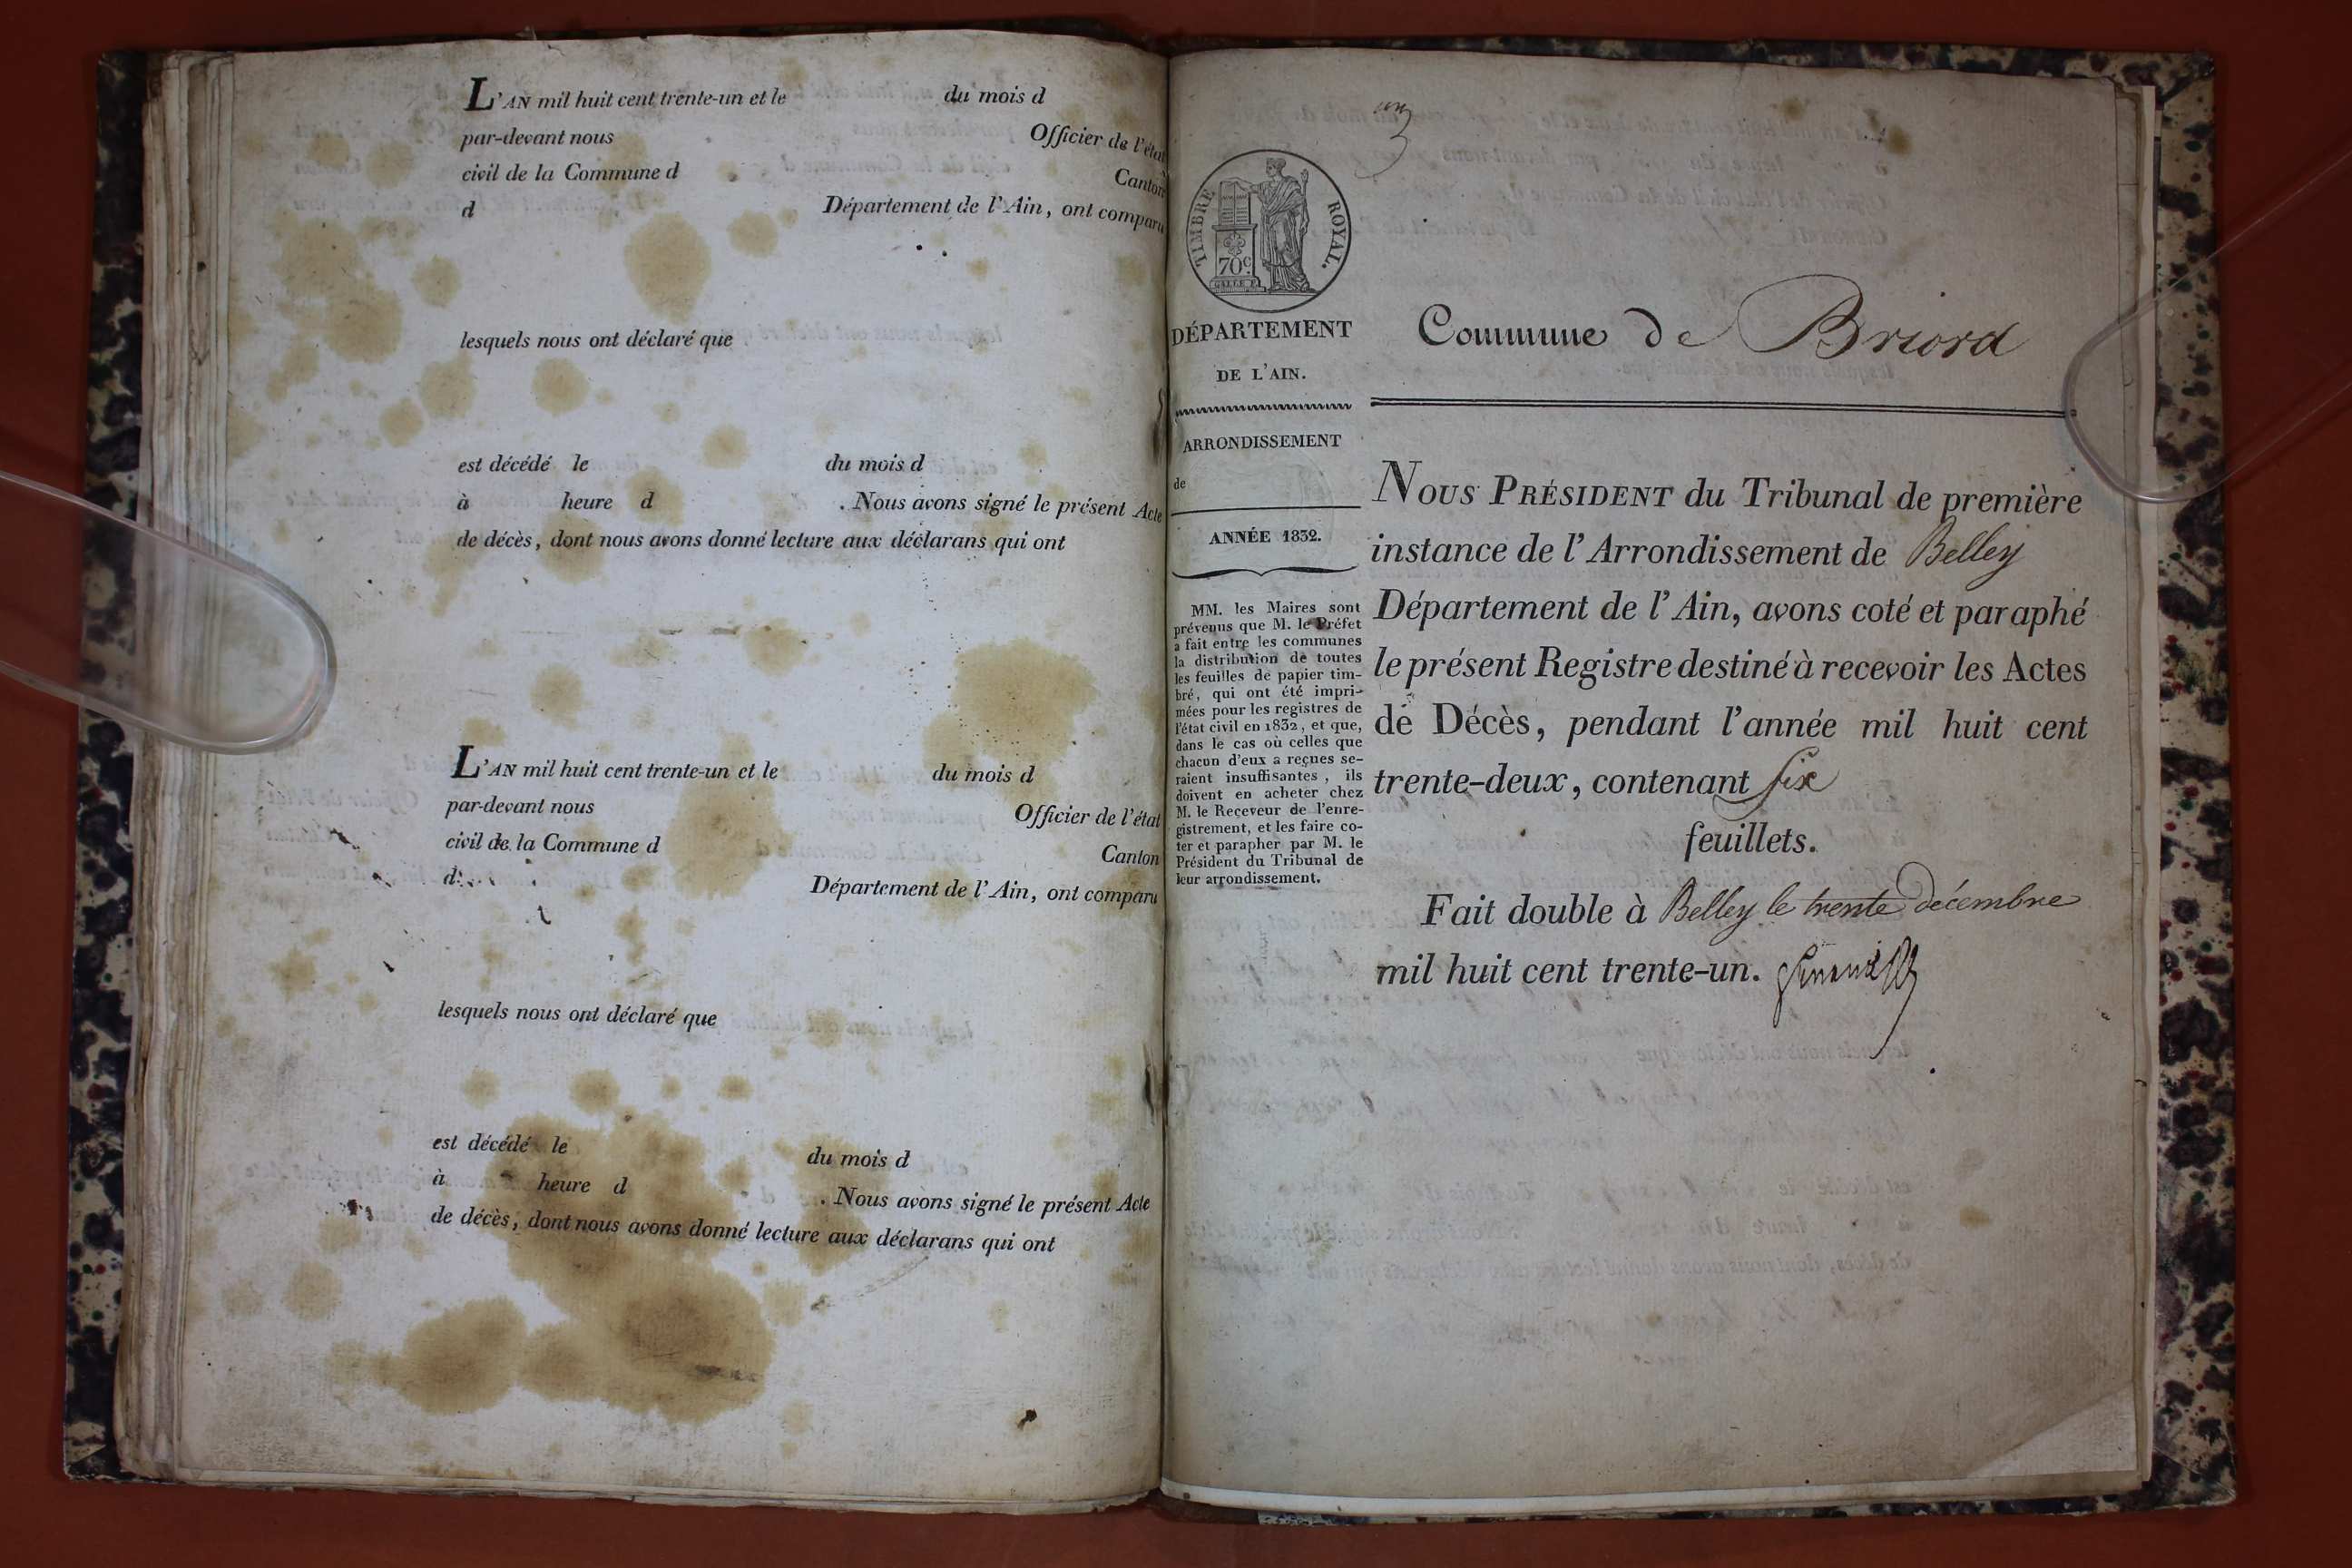 L'AN mil huit cent trente-un et le du mois d
par-devant nous Officier de l'état
civil de la Commune d Canton
d Département de l'Ain, ont comparu
lesquels nous ont déclaré que
est décédé le du mois d
à heure d . Nous avons signé le présent Acte
de décès, dont nous avons donné lecture aux déclarans qui ont
L'AN mil huit cent trente-un et le du mois d
par-devant nous Officier de l'état
civil de la Commune d Canton
d Département de l'Ain, ont comparu
lesquels nous ont déclaré que
est décédé le du mois d
à heure d . Nous avons signé le présent Acte
de décès, dont nous avons donné lecture aux déclarans qui ont
TIMBRE ROYAL.
70c.
DÉPARTEMENT
DE L'AIN.
ARRONDISSEMENT
de
ANNÉE 1832.
MM. les Maires sont
prévenus que M. le Préfet
a fait entre les communes
la distribution de toutes
les feuilles de papier tim-
bré, qui ont été impri-
mées pour les registres de
l'état civil en 1832, et que,
dans le cas où celles que
chacun d'eux a reçues se-
raient insuffisantes, ils
doivent en acheter chez
M. le Receveur de l'enre-
gistrement, et les faire co-
ter et parapher par M. le
Président du Tribunal de
leur arrondissement.
Commune de Briord
NOUS PRÉSIDENT du Tribunal de première
instance de l'Arrondissement de Belley
Département de l'Ain, avons coté et paraphé
le présent Registre destiné à recevoir les Actes
de Décès, pendant l'année mil huit cent
trente-deux, contenant six
feuillets.
Fait double à Belley le trente décembre
mil huit cent trente-un.